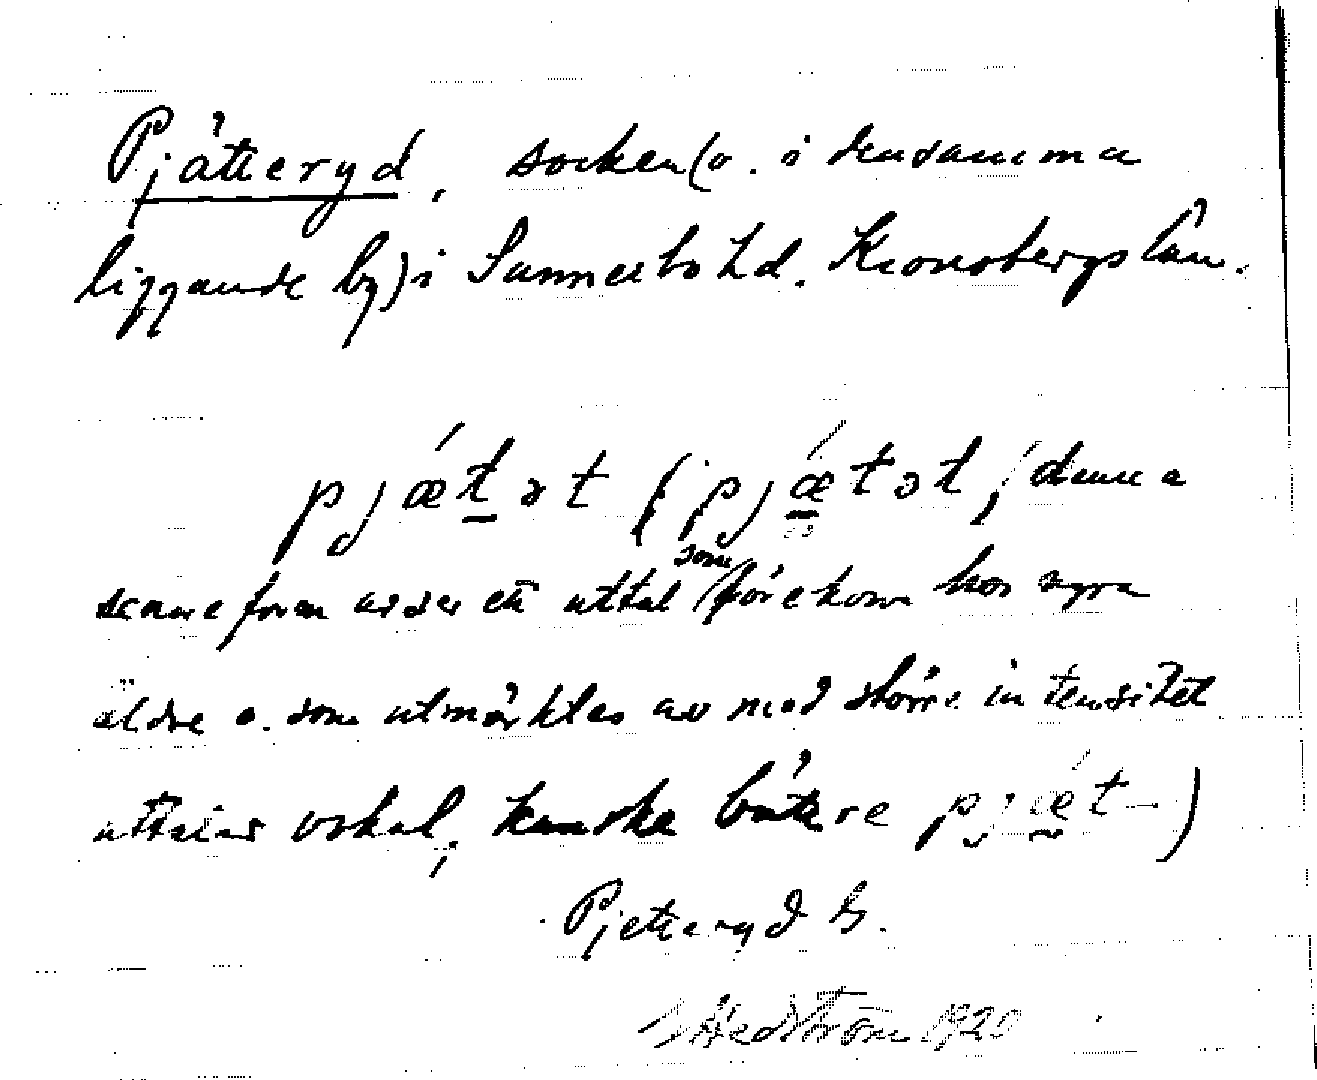 Pjätteryd, socken (o. i densamma
liggande by) i Sunnerbo hd. Kronobergs län.
pjǽt̲ət (pjǽ̲tət, denna
senare form avser ett uttal som förekom hos några
äldre o. som utmärktes av med större intensitet
uttalar vokal, kanske bättre pjǽ̲t-)
Pjetteryd s.
Hedström 1920